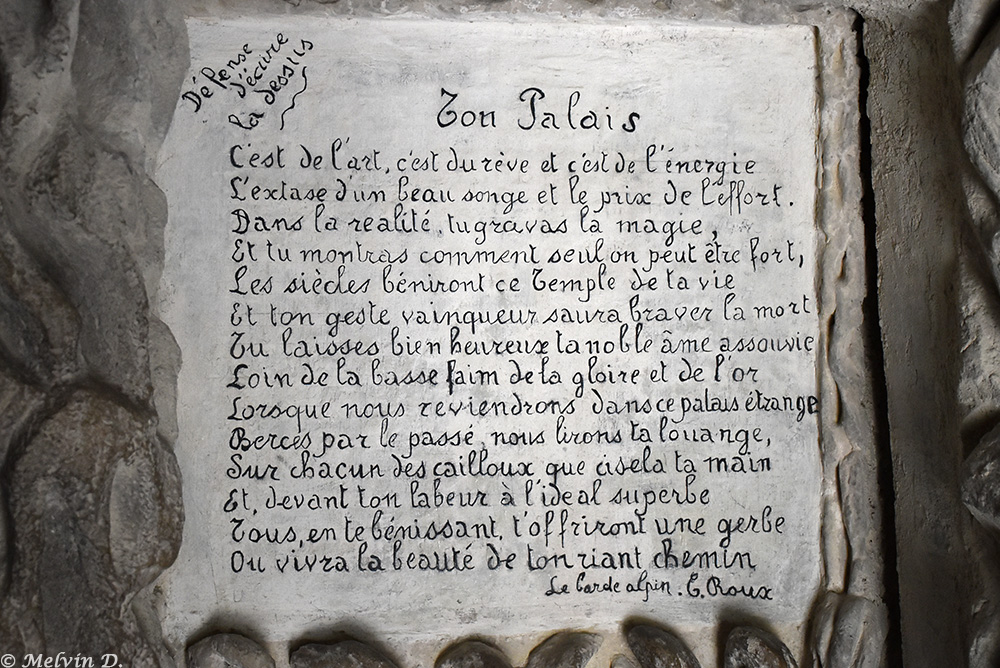 Défense
d'écrire
la dessus
Ton Palais
C'est de l'art, c'est du rève et c'est de l'énergie
L'extase d'un beau songe et le prix de l'effort.
Dans la realité, tu gravas la magie,
Et tu montras comment seul on peut être fort,
Les siècles béniront ce Temple de ta vie
Et ton geste vainqueur saura braver la mort
Tu laisses bien heureux ta noble âme assouvie
Loin de la basse faim de la gloire et de l'or
Lorsque nous reviendrons dans ce palais étrange
Berces par le passé, nous lirons ta louange,
Sur chacun des cailloux que cisela ta main
Et, devant ton labeur à l'ideal superbe
Tous, en te bénissant, t'offriront une gerbe
Ou vivra la beauté de ton riant chemin
Le barde alpin. E. Roux
© Melvin D.